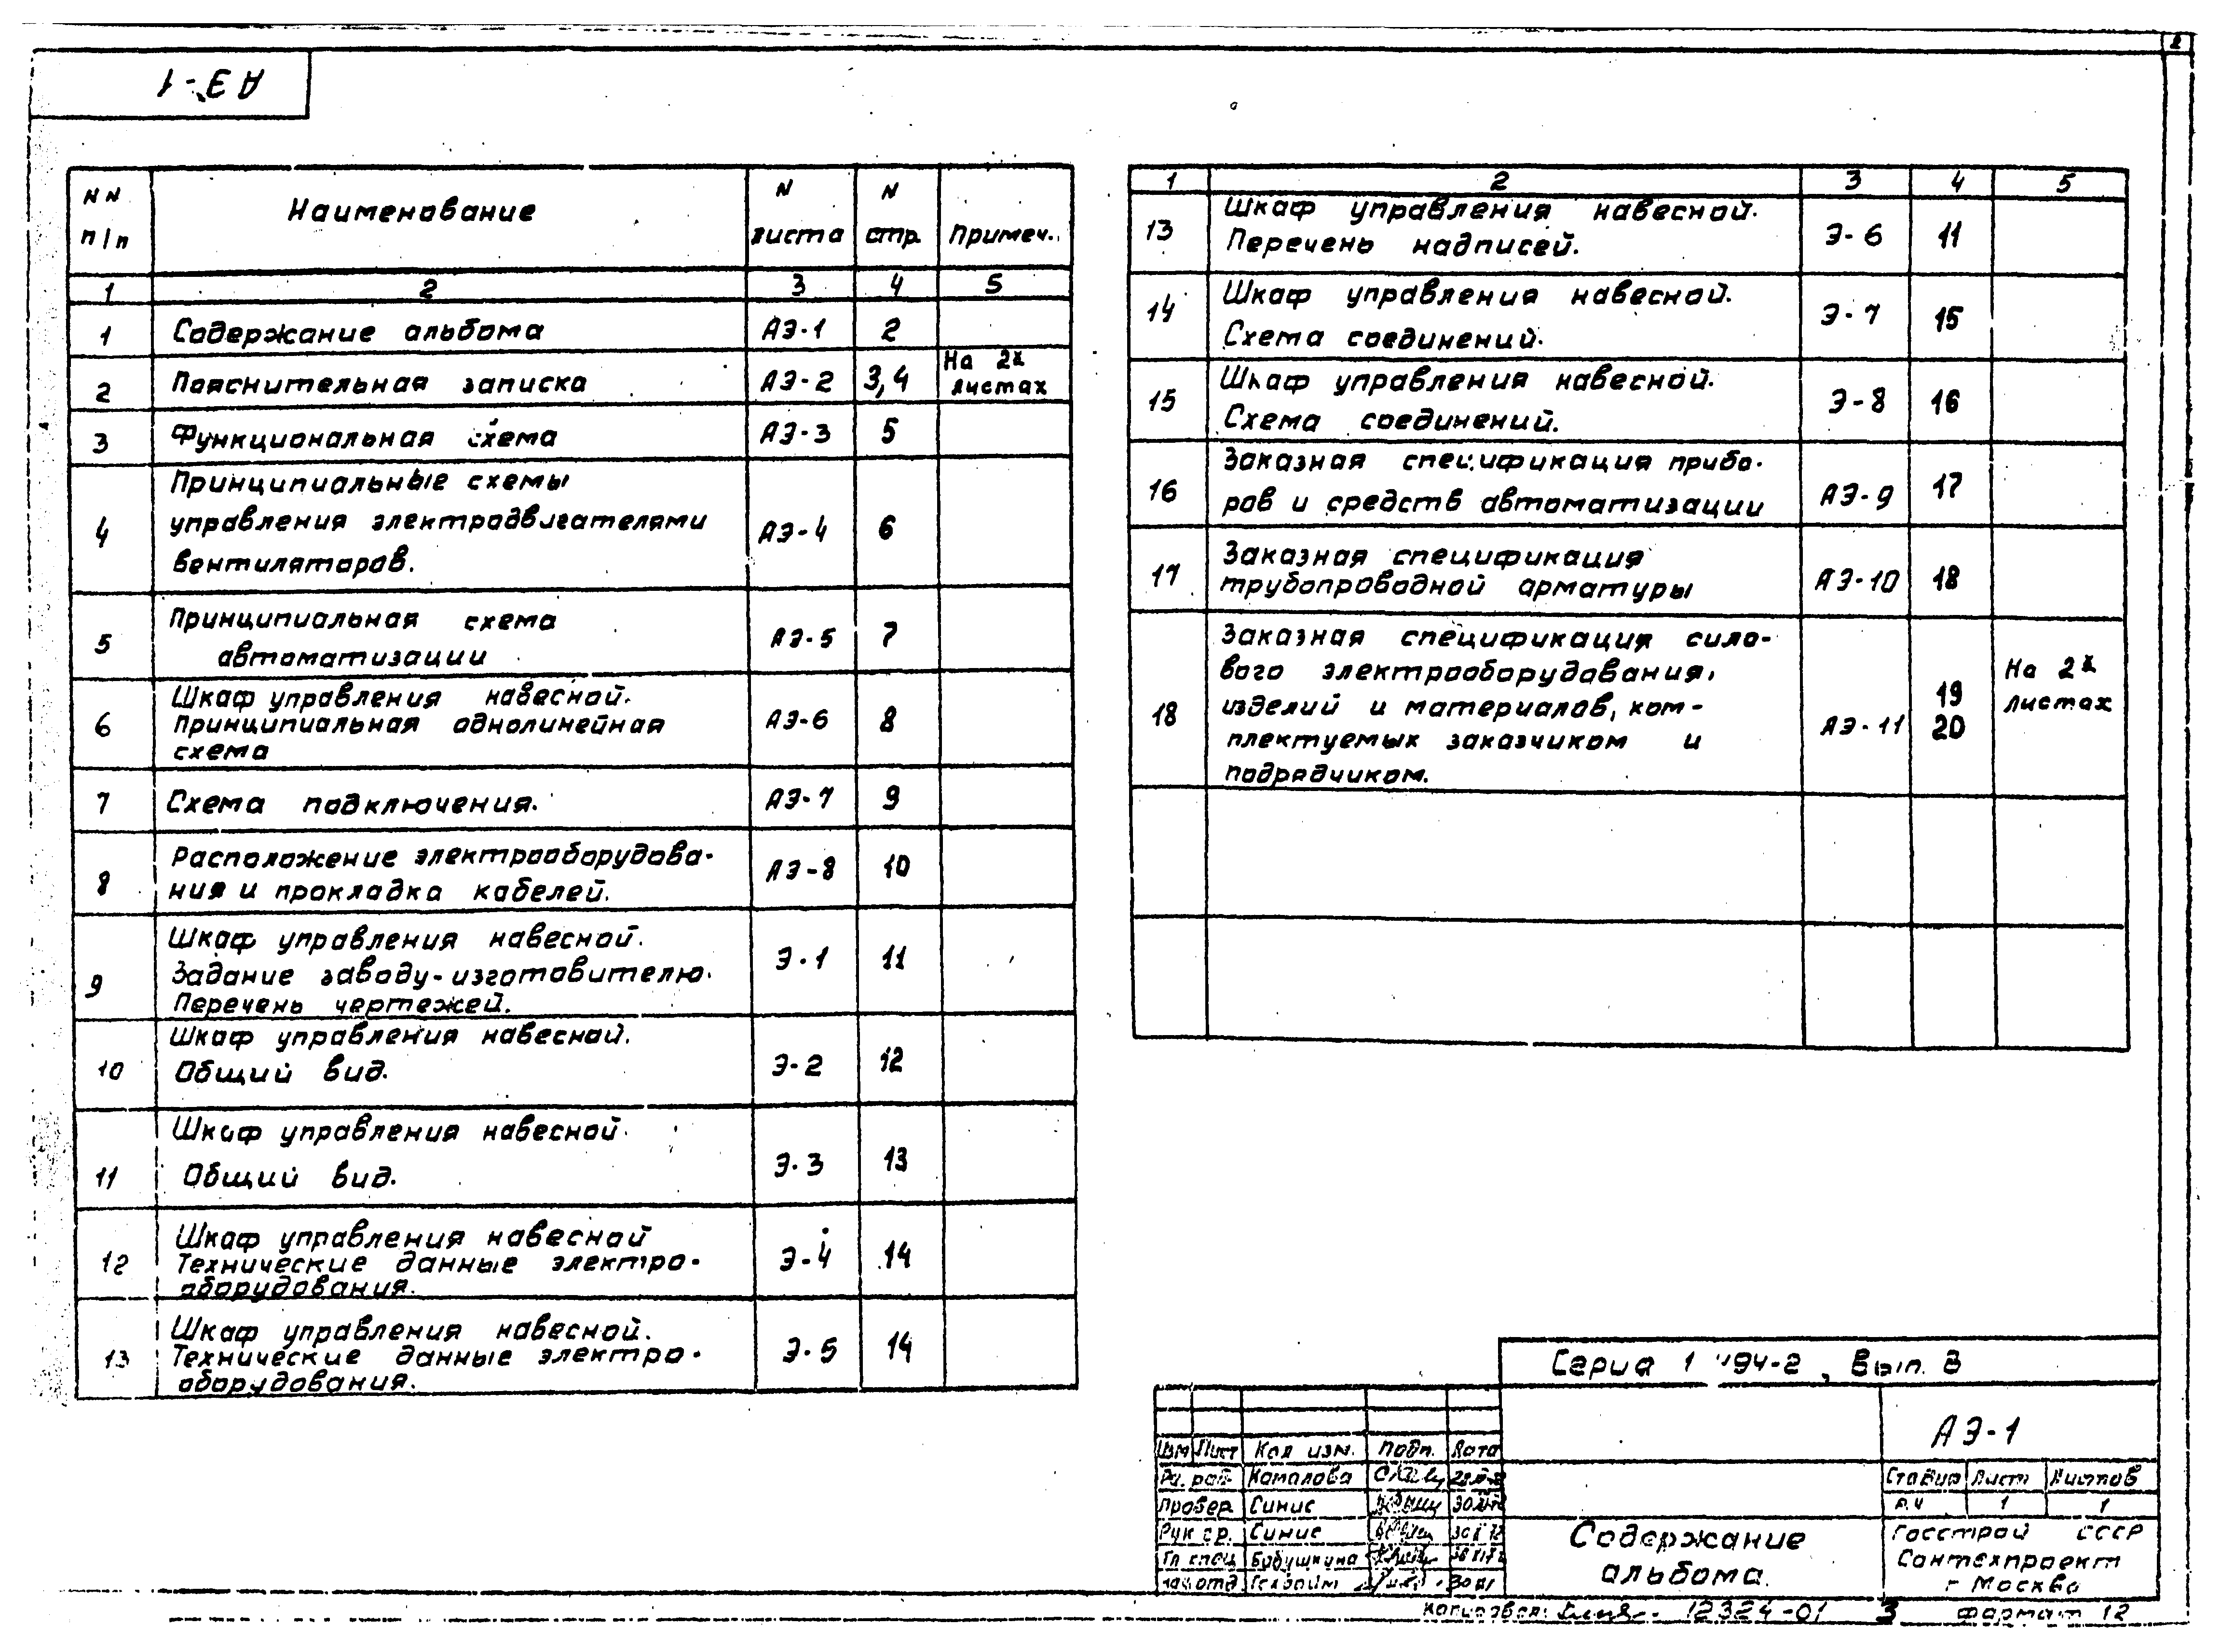 2
АЭ-1
NN п/п Наименование N листа N стр. Примеч.
1 2 3 4 5
1 Содержание альбома АЭ-1 2
2 Пояснительная записка АЭ-2 3,4 На 2х листах
3 Функциональная схема АЭ-3 5
Принципиальные схемы
4 управления электродвигателями АЭ-4 6
вентиляторов.
Принципиальная схема
5 автоматизации АЭ-5 7
Шкаф управления навесной.
6 Принципиальная однолинейная АЭ-6 8
схема
7 Схема подключения. АЭ-7 9
Расположение электрооборудова-
8 ния и прокладка кабелей. АЭ-8 10
Шкаф управления навесной.
9 Задание заводу-изготовителю. Э-1 11
Перечень чертежей.
Шкаф управления навесной.
10 Общий вид. Э-2 12
Шкаф управления навесной.
11 Общий вид. Э-3 13
Шкаф управления навесной
12 Технические данные электро- Э-4 14
оборудования.
Шкаф управления навесной.
13 Технические данные электро- Э-5 14
оборудования.
1 2 3 4 5
Шкаф управления навесной.
13 Перечень надписей. Э-6 11
Шкаф управления навесной.
14 Схема соединений. Э-7 15
Шкаф управления навесной.
15 Схема соединений. Э-8 16
Заказная спецификация прибо-
16 ров и средств автоматизации АЭ-9 17
Заказная спецификация
17 трубопроводной арматуры АЭ-10 18
Заказная спецификация сило-
вого электрооборудования, На 2х
18 изделий и материалов, ком- АЭ-11 19 20 листах
плектуемых заказчиком и
подрядчиком.
Серия 1 494-2, Вып. 8
АЭ-1
Изм Лист Кол изм. Подп. Дата
Камалова
Провер. Синис
Рук гр. Синис
Гл спец Бабушкина
Нач отд
Стадия Лист Листов
Р.Ч 1 1
Содержание
альбома.
Госстрой СССР
Сантехпроект
г Москва
Копировал: 12324-01 3 Формат 12